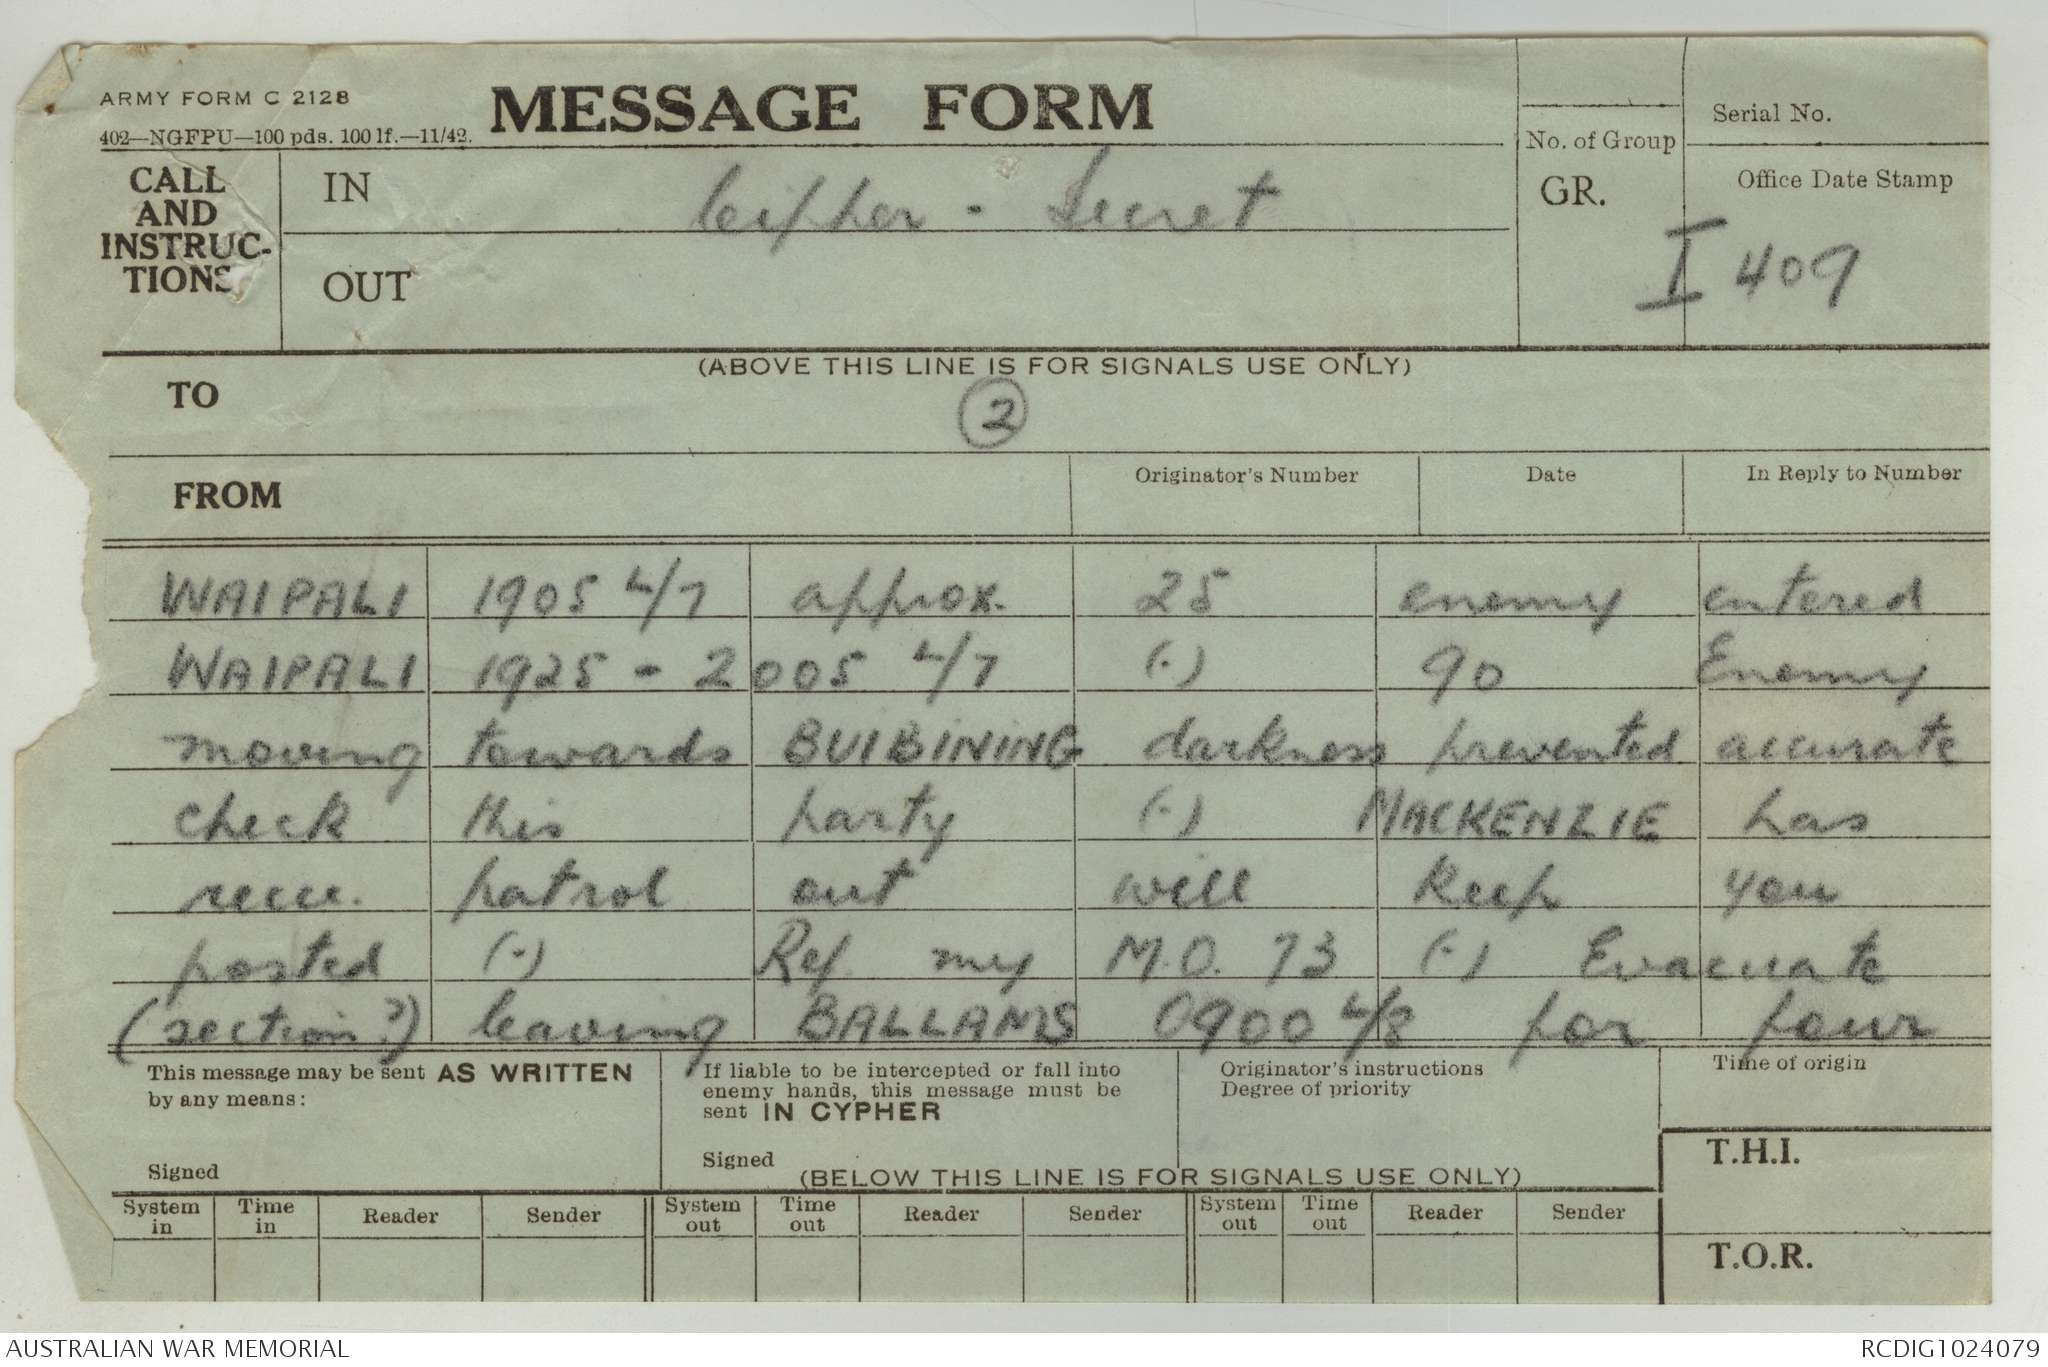 ARMY FORM C 2128
402—NGFPU—100 pds. 100 lf.—11/42.
MESSAGE FORM
No. of Group
Serial No.
CALL AND INSTRUC-TIONS
IN
Cipher - Secret
GR.
Office Date Stamp
OUT
I 409
(ABOVE THIS LINE IS FOR SIGNALS USE ONLY)
TO
2
FROM
Originator's Number
Date
In Reply to Number
WAIPALI 1905 4/7 approx. 25 enemy entered
WAIPALI 1925 - 2005 4/7 (.) 90 Enemy
moving towards BUIBINING darkness prevented accurate
check this party (.) MACKENZIE has
recce. patrol out will keep you
posted (.) Ref. my M.O. 73 (.) Evacuate
(section?) leaving BALLAMS 0900 4/8 for four
This message may be sent AS WRITTEN
by any means:
Signed
If liable to be intercepted or fall into
enemy hands, this message must be
sent IN CYPHER
Signed
Originator's instructions
Degree of priority
Time of origin
T.H.I.
(BELOW THIS LINE IS FOR SIGNALS USE ONLY)
System in
Time in
Reader
Sender
System out
Time out
Reader
Sender
System out
Time out
Reader
Sender
T.O.R.
AUSTRALIAN WAR MEMORIAL
RCDIG1024079